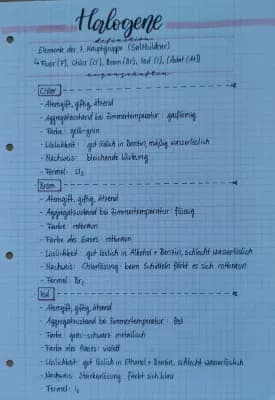 Halogene
definition
Elemente der 7. Hauptgruppe (Salzbildner)
↳ Fluor (F), Chlor (Cl), Brom (Br), Iod (I), (Astat (At))
eigenschaften
Chlor
- Atemgift, giftig, ätzend
- Aggregatzustand bei Zimmertemperatur: gasförmig
- Farbe: gelb-grün
- Löslichkeit: gut löslich in Benzin, mäßig wasserlöslich
- Nachweis: bleichende Wirkung
- Formel: Cl₂
Brom
- Atemgift, giftig, ätzend
- Aggregatzustand bei Zimmertemperatur: flüssig
- Farbe: rotbraun
- Farbe des Gases: rotbraun
- Löslichkeit: gut löslich in Alkohol + Benzin, schlecht wasserlöslich
- Nachweis: Chlorlösung: beim Schütteln färbt es sich rotbraun
- Formel: Br₂
Iod
- Atemgift, giftig, ätzend
- Aggregatzustand bei Zimmertemperatur: fest
- Farbe: grau-schwarz metallisch
- Farbe des Gases: violett
- Löslichkeit: gut löslich in Ethanol + Benzin, schlecht wasserlöslich
- Nachweis: Stärkelösung: färbt sich blau
- Formel: I₂